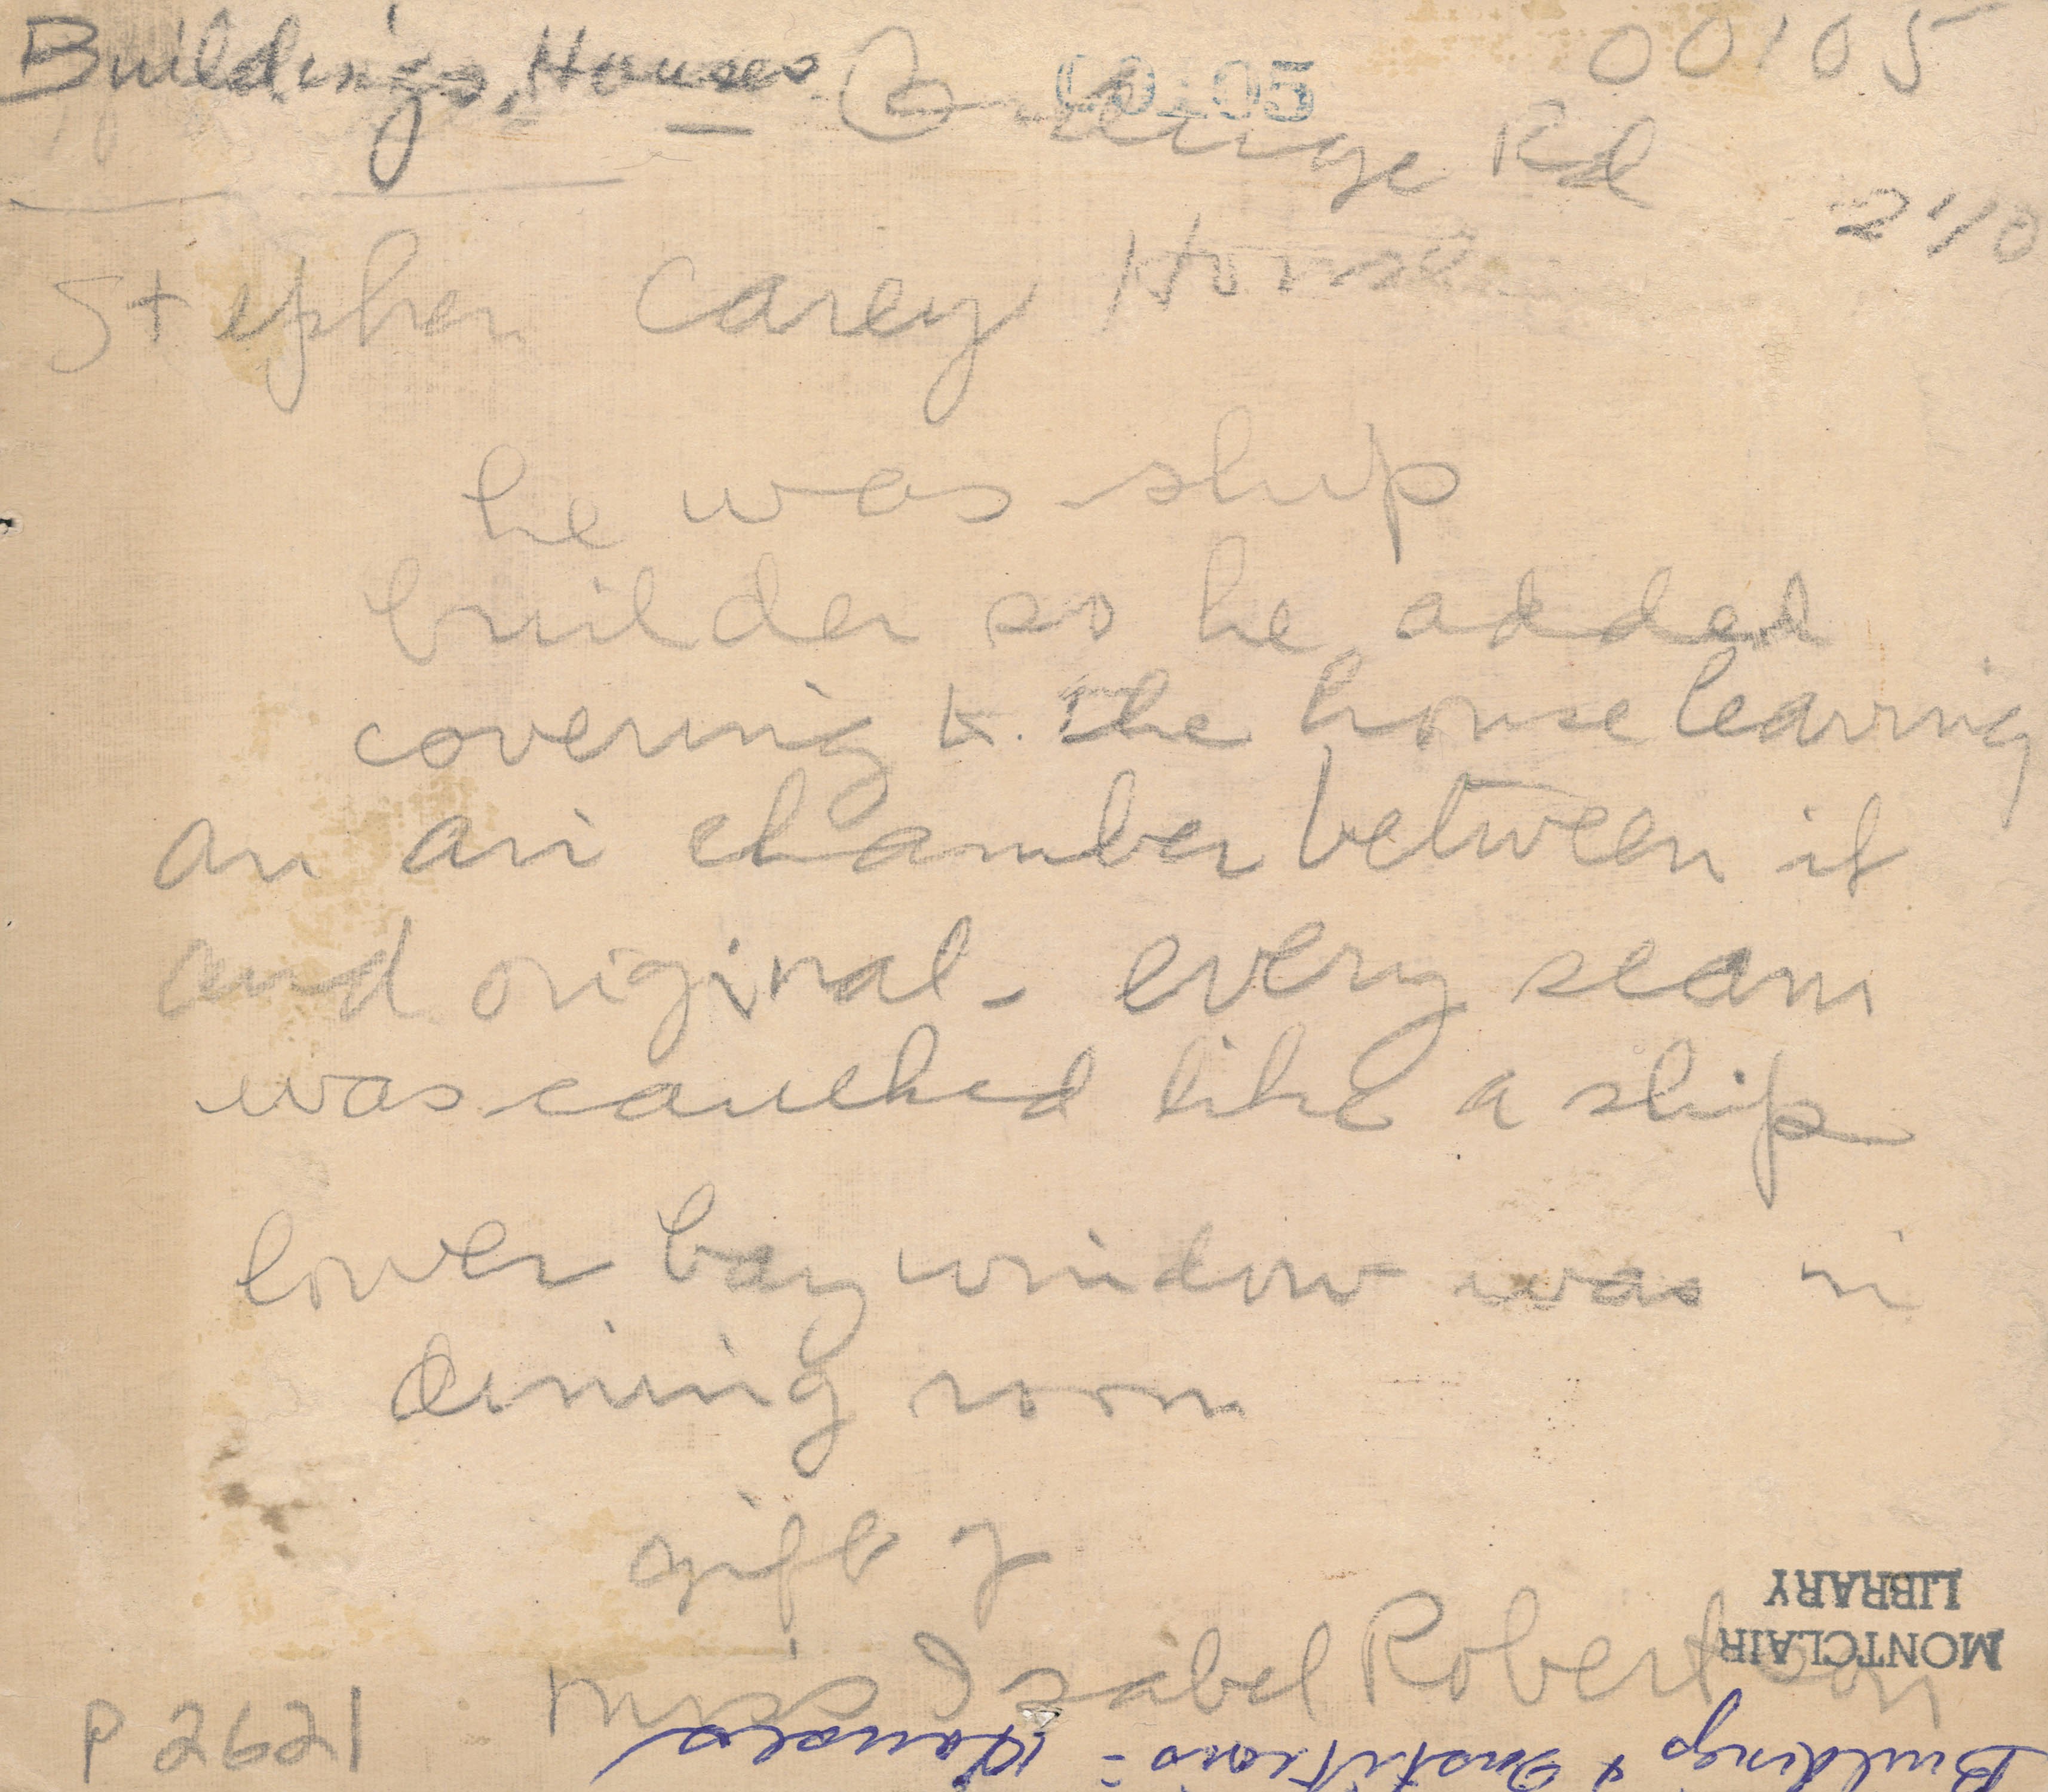 Buildings, Houses - Orange Rd
00105
00105
210
Stephen Carey House
he was ship
builder so he added
covering to the house leaving
an air chamber between it
and original - every seam
was caulked like a ship
lower bay window was in
dining room
gift of
Miss Izabel Robertson
P 2621
MONTCLAIR
LIBRARY
Buildings & Institutions = Houses